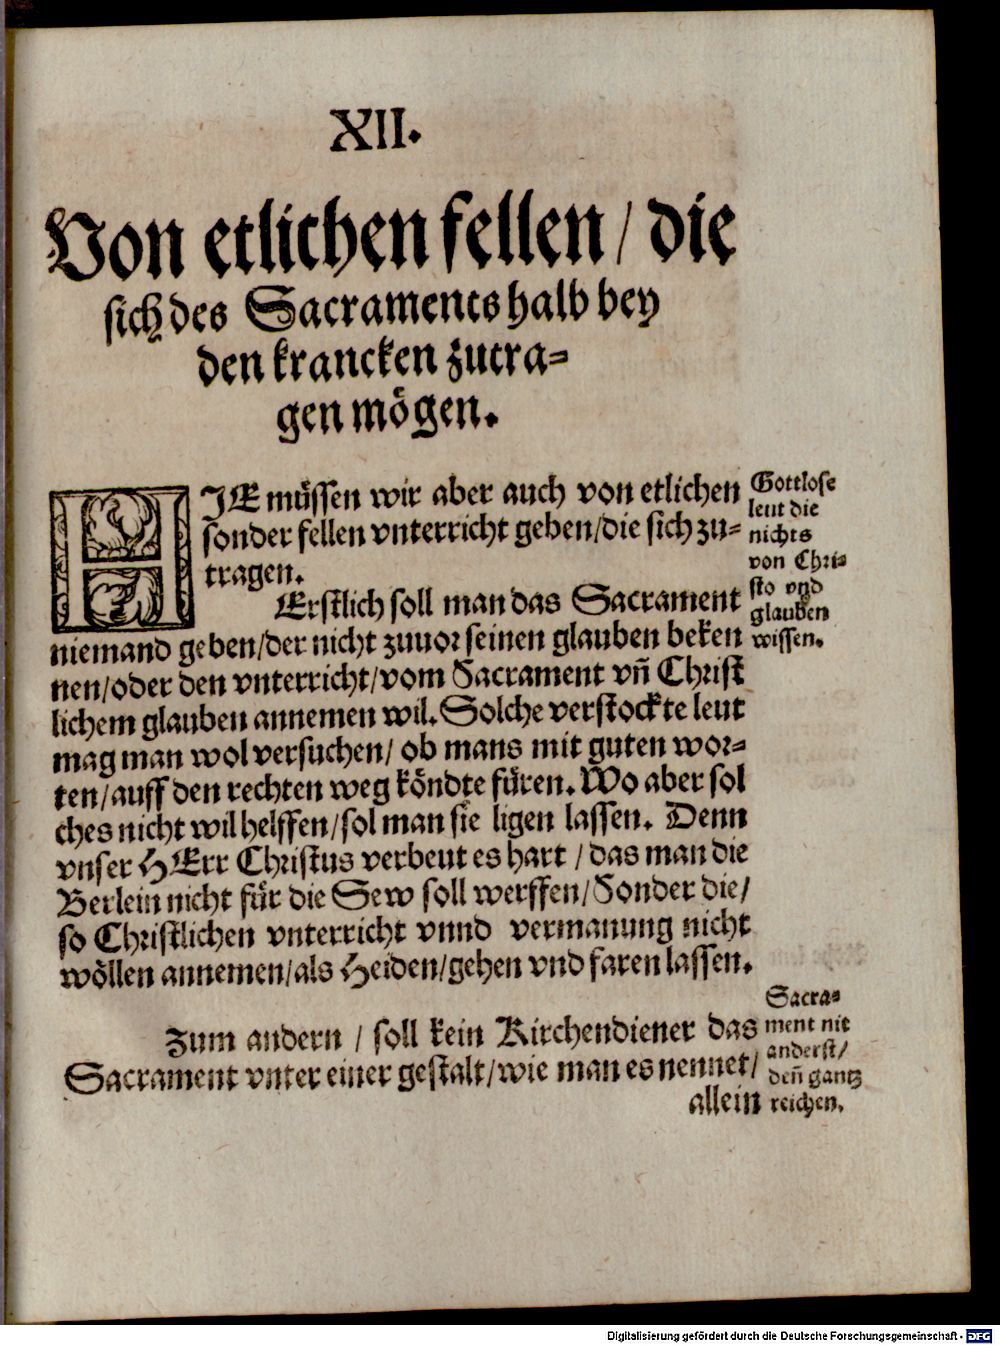 XII.
Von etlichen fellen / die
sich des Sacraments halb bey
den krancken zutra-
gen mögen.
HIE müssen wir aber auch von etlichen
sonder fellen vnterricht geben/die sich zu-
tragen.
Erstlich soll man das Sacrament
niemand geben/der nicht zuuor seinen glauben beken
nen/oder den vnterricht/vom Sacrament vñ Christ
lichem glauben annemen wil. Solche verstockte leut
mag man wol versuchen/ ob mans mit guten wor-
ten/auff den rechten weg köndte füren. Wo aber sol
ches nicht wil helffen/sol man sie ligen lassen. Denn
vnser HErr Christus verbeut es hart / das man die
Berlein nicht für die Sew soll werffen/Sonder die/
so Christlichen vnterricht vnnd vermanung nicht
wöllen annemen/als Heiden/gehen vnd faren lassen.
Zum andern / soll kein Kirchendiener das
Sacrament vnter einer gestalt/wie man es nennet/
allein
Gottlose
leut die
nichts
von Chri-
sto vnd
glauben
wissen.
Sacra-
ment nit
anderst/
deñ gantz
reichen.
Digitalisierung gefördert durch die Deutsche Forschungsgemeinschaft - DFG